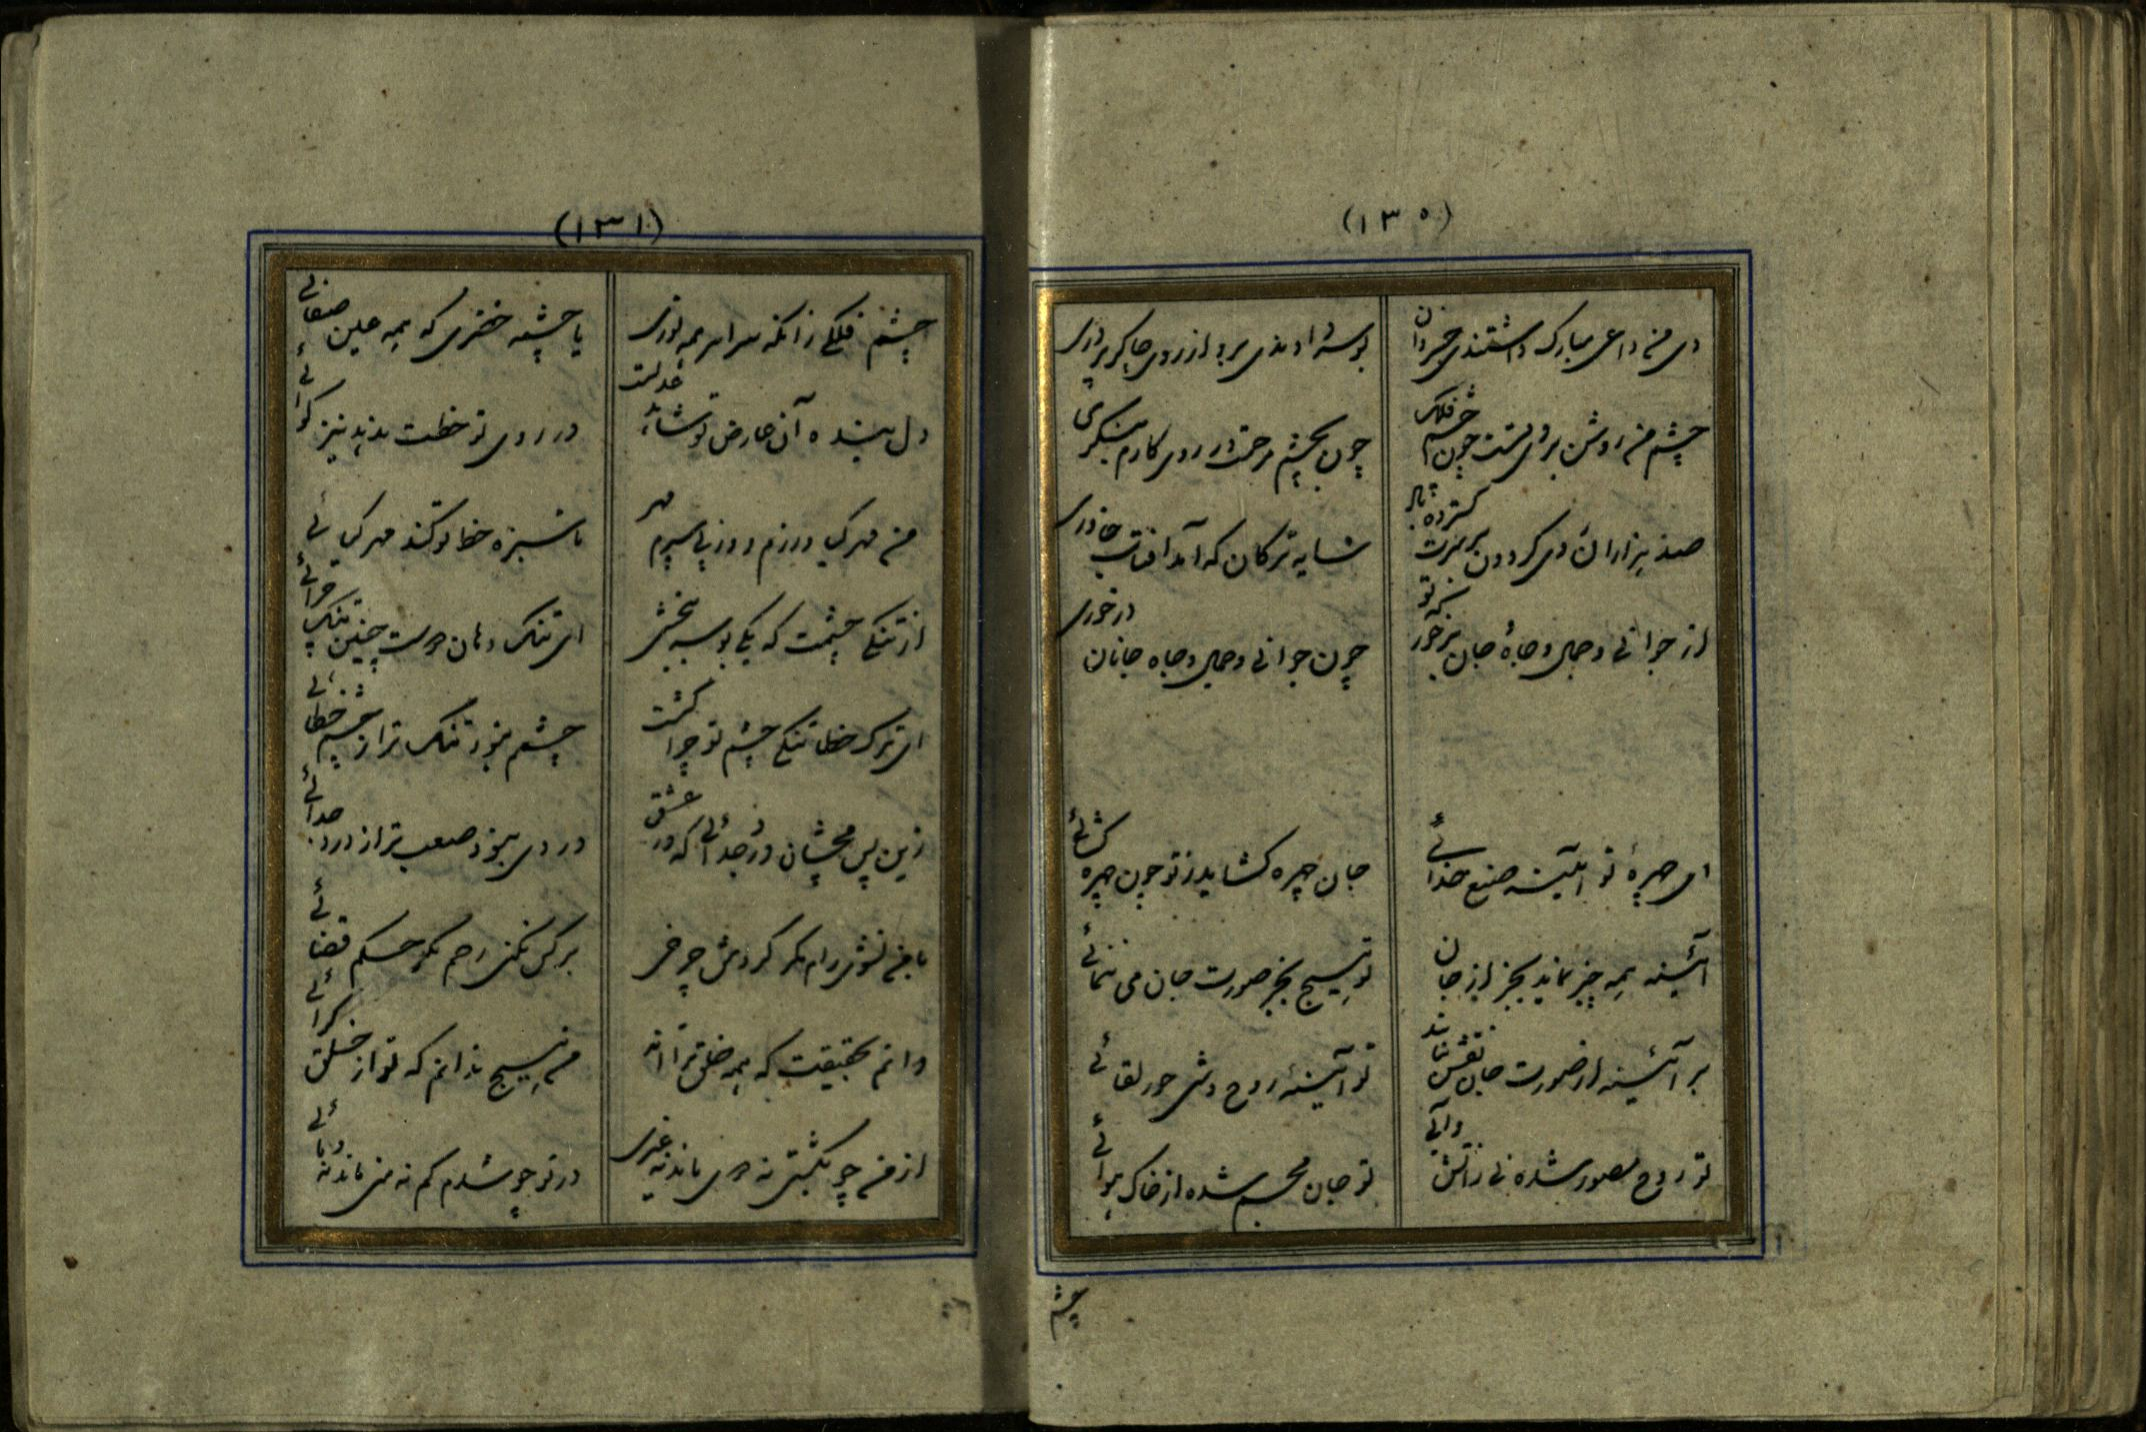 (۱۳۰)
ای منه داعی مبارک داشتندی خسروان
بوسه دادندی برو از روی چاکر پروری
چشم من روشن بروی تست چون چشم فلک
چون بچشم مرحمت در روی کارم بنگری
صد هزاران دی کردون بر سرت گسترده باد
سایه ترکان که آمد آفتاب خاوری
از جوانی و جمال و جاه جان برخور که تو
چون جوانی و جمال و جاه جانان درخوری
ای چهرهٔ تو آیینه صنع خدائی
جان چهره گشاید ز تو چون چهره گشائی
آئینه همه چیز نماید بجز از جان
تو هیچ بجز صورت جان می ننمائی
بر آئینه از صورت جان نقش نماند
تو آیینهٔ روح وشی حور لقائی
تو روح مصور شده نی ز آتش و آبی
تو جان مجسم شده از خاک و هوائی
چشم
(۱۳۱)
چشم فلکی زانکه سراسر همه نوری
یا چشمه خضری که همه عین صفائی
دل بنده آن عارض تو شاهد عدلست
در روی تو خطت بدهد نیز گوائی
من مهر گیا ورزم و ورزی سپرم مهر
تا سبزه خط تو کند مهر گیائی
از تنگی چشمت که یکی بوسه نبخشی
ای تنگ دهان چست چنین تنگ چرائی
ای ترک خطا تنگی چشم تو چرا گشت
چشم نبود تنگ تر از چشم خطائی
زین پس مچشان درد جدائی که در عشق
دردی نبود صعب تر از درد جدائی
با من نشوی رام مگر گردش چرخی
بر کس نکنی رحم مگر حکم قضائی
دانم بحقیقت که همه خلق ترا اند
من هیچ ندانم که تو از خلق کرائی
از من چو بگشتی نه منی ماند نه غیری
در تو چو شدم گم نه منی ماند نه مائی